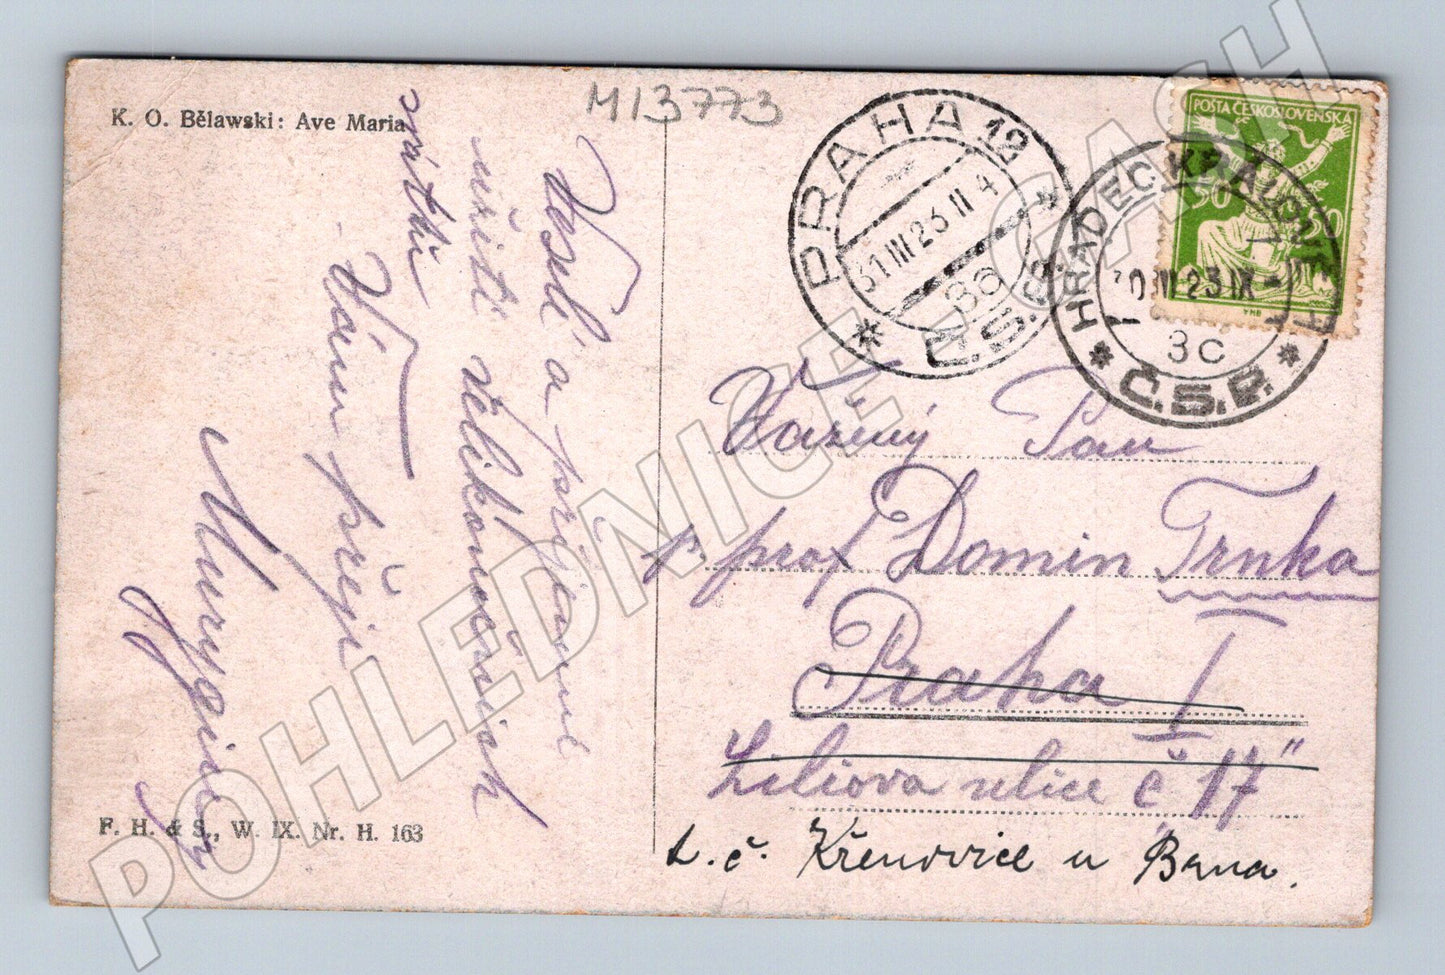 K. O. Bělawski: Ave Maria
M13773
Veselé a příjemné
užití velikonočních
svátků
Vám přejí
F. H. & S., W. IX. Nr. H. 163
PRAHA 12
31 III 23 II 4
3a
Č.S.P.
HRADEC KRÁLOVÉ 1
30 III 23 IX
3c
Č.S.P.
POŠTA ČESKOSLOVENSKÁ
50 50
Vážený Pan
p. prof Domin Trnka
Praha I
Liliova ulice č 17"
t. č. Křenovice u Brna.
POHLEDNICE CASH